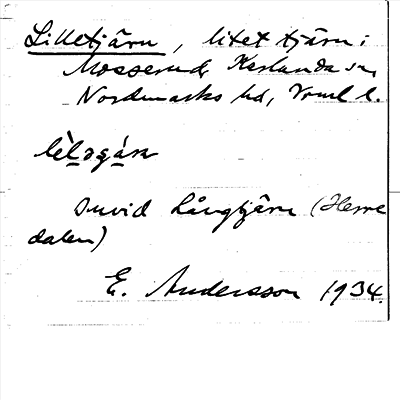 Lilletjärn, litet tjärn i
Mosserud, Karlanda sn,
Nordmarks hd, Vrml l.
invid Långtjärn (Herre
dalen)
E. Andersson 1934.